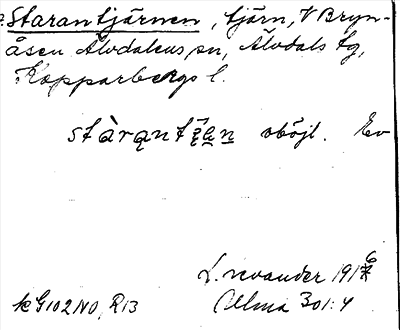 Starantjärnen, tjärn, V Bryn-
åsen Älvdalens sn, Älvdals tg,
Kopparbergs l.
oböjl. Ev
L. Levander 1916
Ulma 301:4
kG102NO, R13